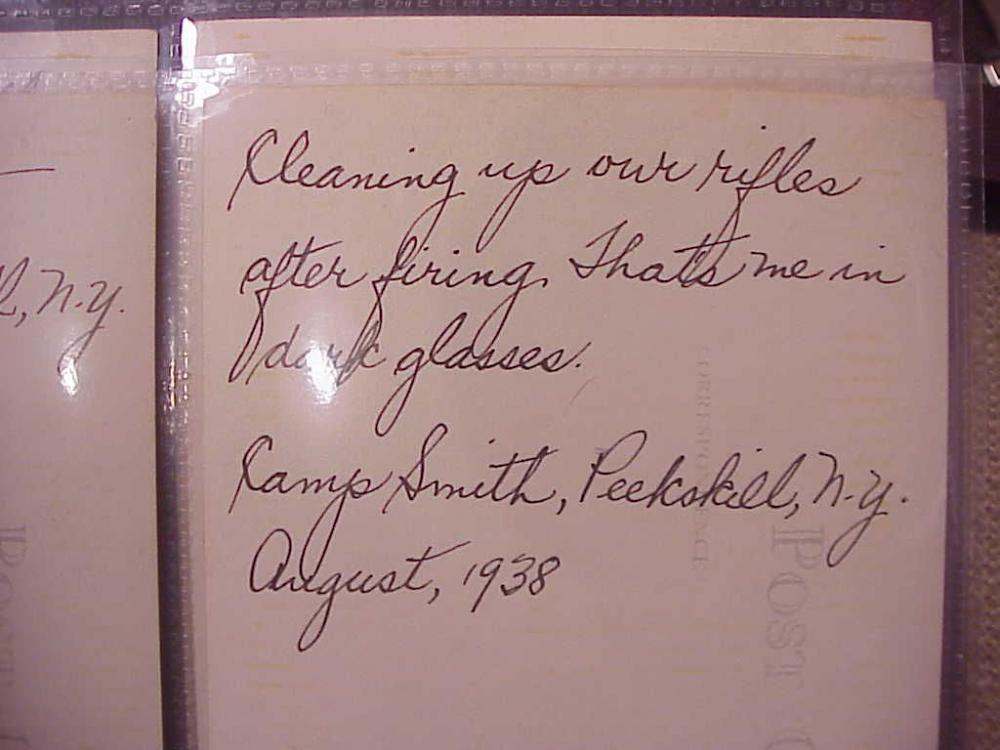 Cleaning up our rifles
after firing. That's me in
dark glasses.
Camp Smith, Peekskill, N.Y.
August, 1938
l, N.Y.
CORRESPONDENCE
POST